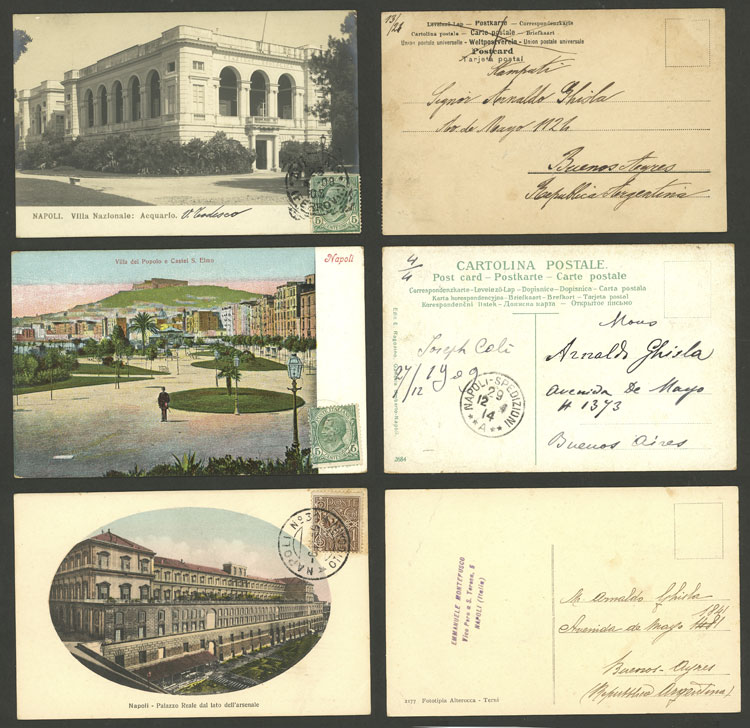 NAPOLI. Villa Nazionale: Acquario.
13/24
Levelezö-Lap — Postkarte — Correspondenzkarte
Cartolina postale — Carte postale — Briefkaart
Union postale universelle — Weltpostverein — Union postale universale
Postcard
Tarjeta postal
Stampati
Signor Arnaldo Ghisla
Av. de Mayo 1126
Buenos Ayres
Republica Argentina
Villa del Popolo e Castel S. Elmo
Napoli
4/4
CARTOLINA POSTALE.
Post card - Postkarte - Carte postale
Correspondenzkarte - Levelezö-Lap - Dopisnice - Dopisnica - Carta postala
Karta korespondencyjna - Briefkaart - Brefkort - Tarjeta postal
Korespondenční lístek - Дописна карта - Открытое письмо
Joseph Celi
27/12 1909
NAPOLI-SPEDIZIONI
29
12
14
**A**
Mons
Arnaldo Ghisla
Avenida De Mayo
# 1373
Buenos Aires
Napoli - Palazzo Reale dal lato dell'arsenale
EMMANUELE MONTEFUSCO
NAPOLI (Italia)
M. Arnaldo Ghisla
Avenida de Mayo
Buenos-Ayres
(Repubblica Argentina)
2177 Fototipia Alterocca - Terni